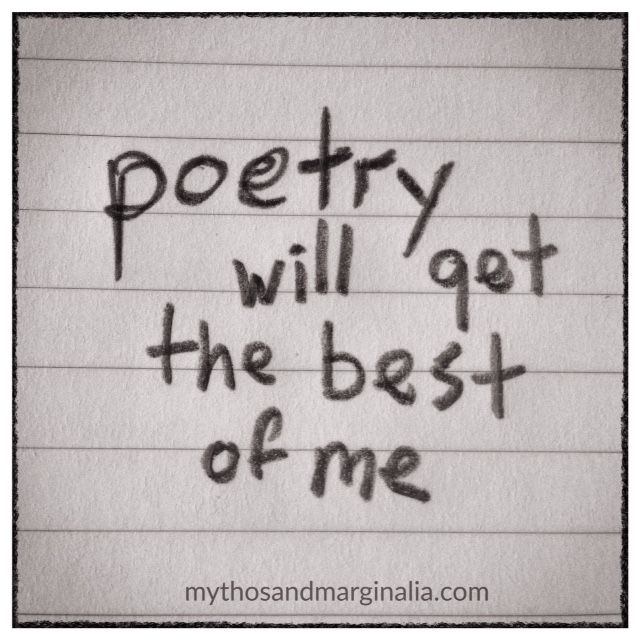 poetry
will get
the best
of me
mythosandmarginalia.com